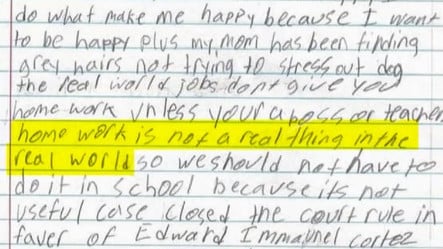 do what make me happy because I want
to be happy plus my mom has been finding
grey hairs not trying to stress out dog
the real world jobs dont give you
home work unless your a boss or teacher
home work is not a real thing in the
real world so we should not have to
do it in school because its not
useful case closed the court rule in
faver of Edward Immanuel Cortez